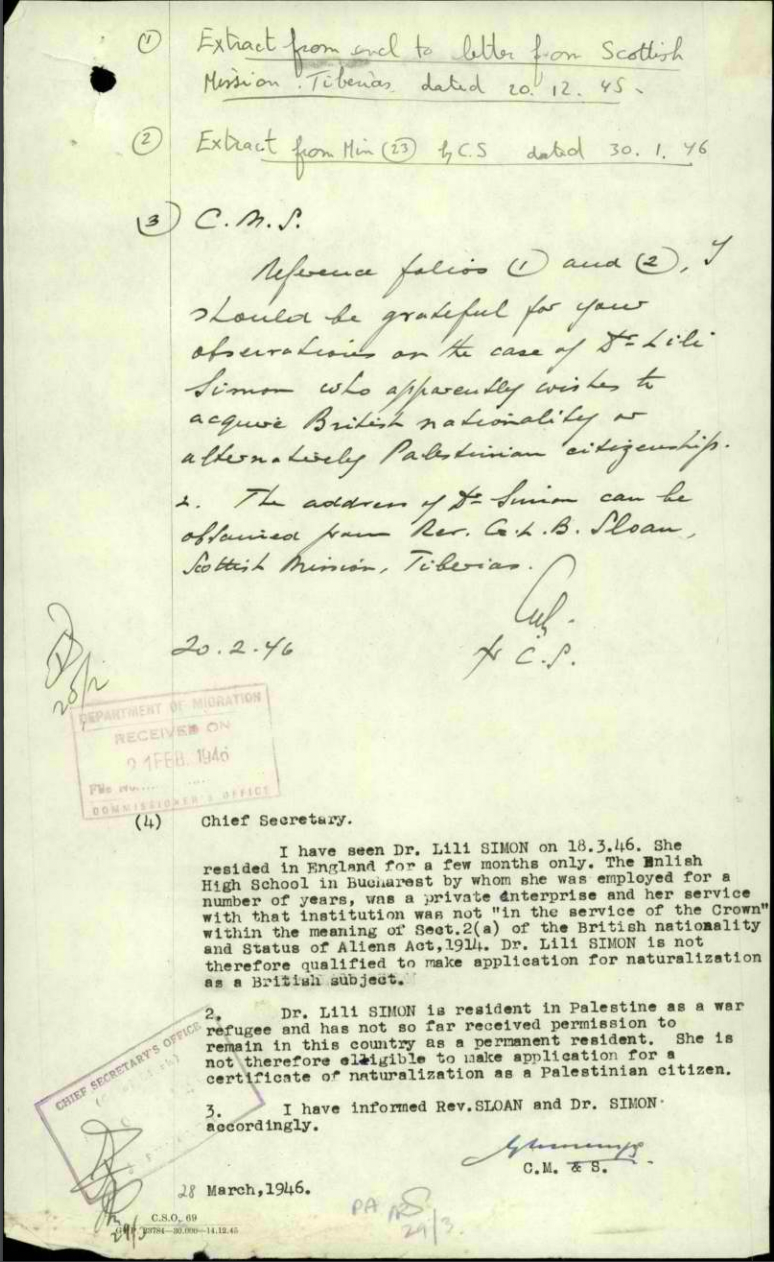 (1) Extract from encl to letter from Scottish
Mission. Tiberias dated 20.12.45.
(2) Extract from Min (23) by C.S dated 30.1.46
(3) C.M.S.
Reference folios (1) and (2), I
should be grateful for your
observations on the case of Dr Lili
Simon who apparently wishes to
acquire British nationality or
alternatively Palestinian citizenship.
2. The address of Dr Simon can be
obtained from Rev. G.L.B. Sloan,
Scottish Mission, Tiberias.
20.2.46
fr C.S.
DEPARTMENT OF MIGRATION
RECEIVED ON
21 FEB. 1946
File No.....
COMMISSIONER'S OFFICE
(4) Chief Secretary.
I have seen Dr. Lili SIMON on 18.3.46. She
resided in England for a few months only. The Enlish
High School in Bucharest by whom she was employed for a
number of years, was a private enterprise and her service
with that institution was not "in the service of the Crown"
within the meaning of Sect.2(a) of the British nationality
and Status of Aliens Act,1914. Dr. Lili SIMON is not
therefore qualified to make application for naturalization
as a British subject."
2. Dr. Lili SIMON is resident in Palestine as a war
refugee and has not so far received permission to
remain in this country as a permanent resident. She is
not therefore elligible to make application for a
certificate of naturalization as a Palestinian citizen.
3. I have informed Rev.SLOAN and Dr. SIMON
accordingly.
C.M. & S.
28 March,1946.
CHIEF SECRETARY'S OFFICE
PA
29/3.
C.S.O. 69
23784—30,000—14.12.45